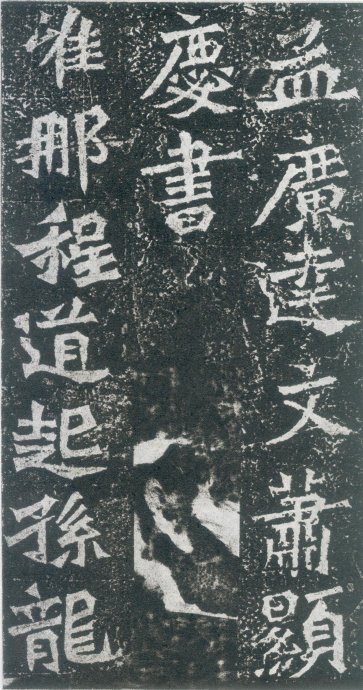 孟廣達文蕭顯
慶書
唯那程道起孫龍